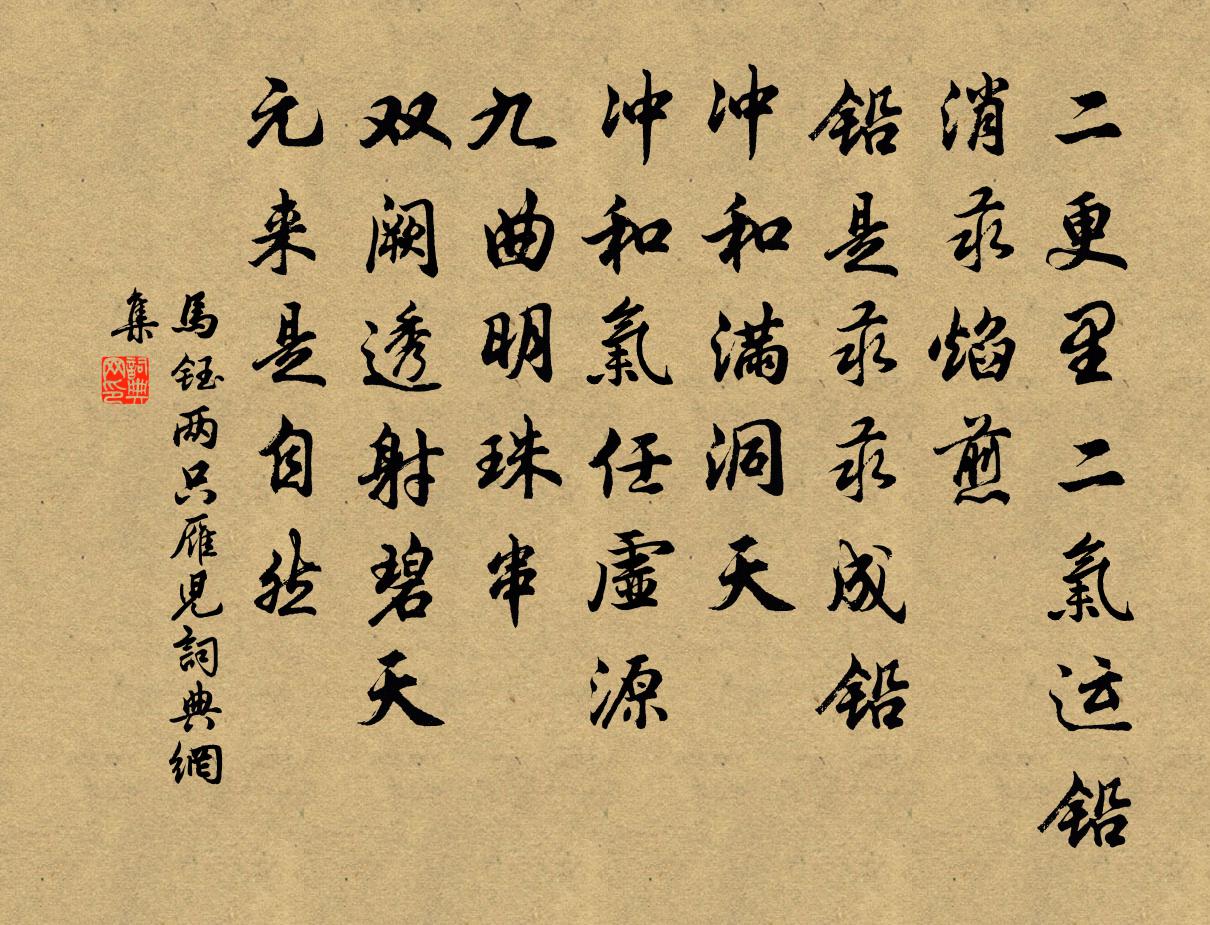 二更里二氣运铅
消汞焰煎
铅是汞汞成铅
冲和满洞天
冲和氣任虚源
九曲明珠串
双阙透射碧天
元来是自然
馬钰两只雁児詞典網
集
詞典网印